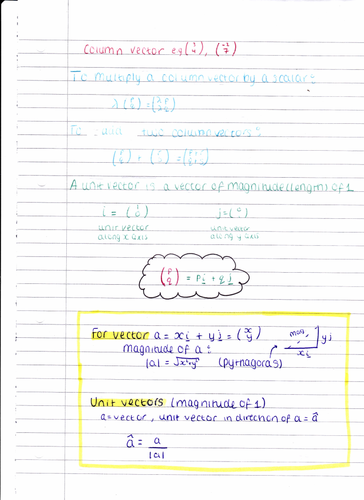 Column vector eg (3 4), (-1 7)
To multiply a column vector by a scalar:
To add two column vectors:
A unit vector is a vector of magnitude (length) of 1
i = (1 0) j = (0 1)
unit vector along x axis unit vector along y axis
(p q) = pi + qj
For vector a = xi + yj = (x y)
magnitude of a:
|a| = √x²+y² (pythagoras)
mag, yj
xi
Unit vectors (magnitude of 1)
a = vector, unit vector in direction of a = â
â = a
|a|